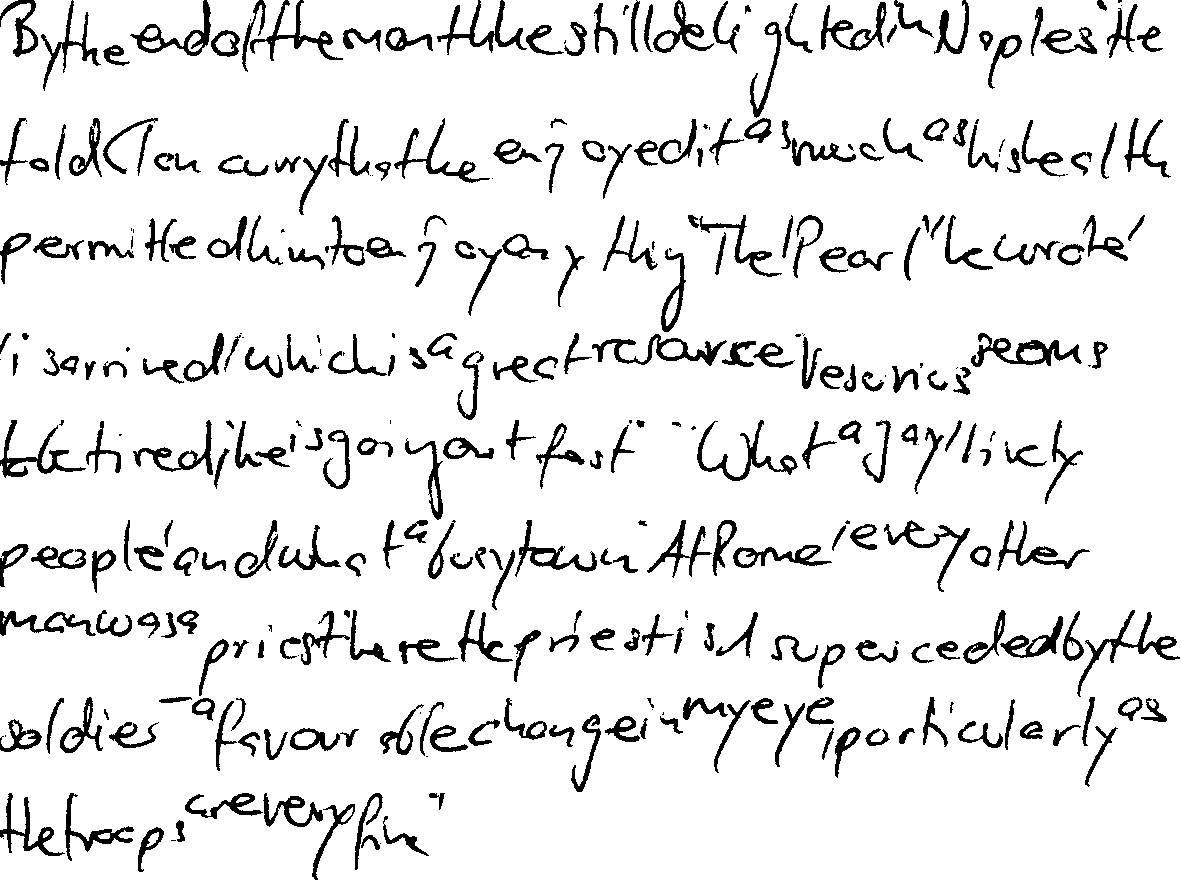 By the end of the month he still delighted in Naples. He
told Toncurry that he enjoyed it as much as his health
permitted him to enjoy any thing. "The 'Pearl'" he wrote,
"is arrived, which is a great resource. Vesuvius seems
to be tired; he is going out fast." "What a gay, lively
people, and what a busy town. At Rome, every other
man was a priest; here the priest is superceded by the
soldier - a favourable change in my eye, particularly as
the troops are very fine."